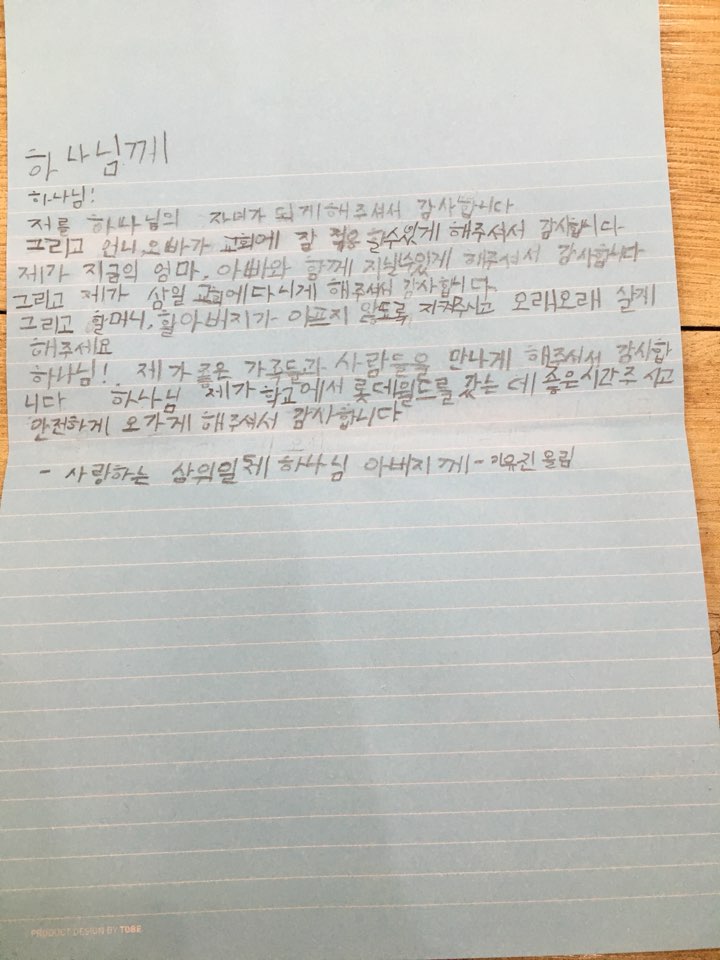 하나님께
하나님!
저를 하나님의 자녀가 되게해주셔서 감사합니다
그리고 언니,오빠가 교회에 잘 적응 할수있게 해주셔서 감사합니다
제가 지금의 엄마, 아빠와 함께 지낼수있게 해주셔서 감사합니다
그리고 제가 삼일 교회에다니게 해주셔서 감사합니다.
그리고 할머니,할아버지가 아프지 않도록 지켜주시고 오래오래 살게
해주세요
하나님! 제가 좋은 가족들과 사람들을 만나게 해주셔서 감사합
니다 하나님 제가 학교에서 롯데월드를 갔는 데 좋은시간주 시고
안전하게 오가게 해주셔서 감사합니다
- 사랑하는 삼위일체 하나님 아버지께- 유진 올림
PRODUCT DESIGN BY TOBE